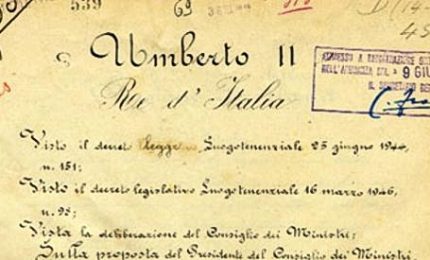 539
69
Umberto II
Re d'Italia
9 GIU
Visto il decret legge Luogotenenziale 25 giugno 1944,
n. 151;
Visto il decreto legislativo Luogotenenziale 16 marzo 1946,
n. 98;
Vista la deliberazione del Consiglio dei Ministri;
Sulla proposta del Presidente del Consiglio dei Ministri,